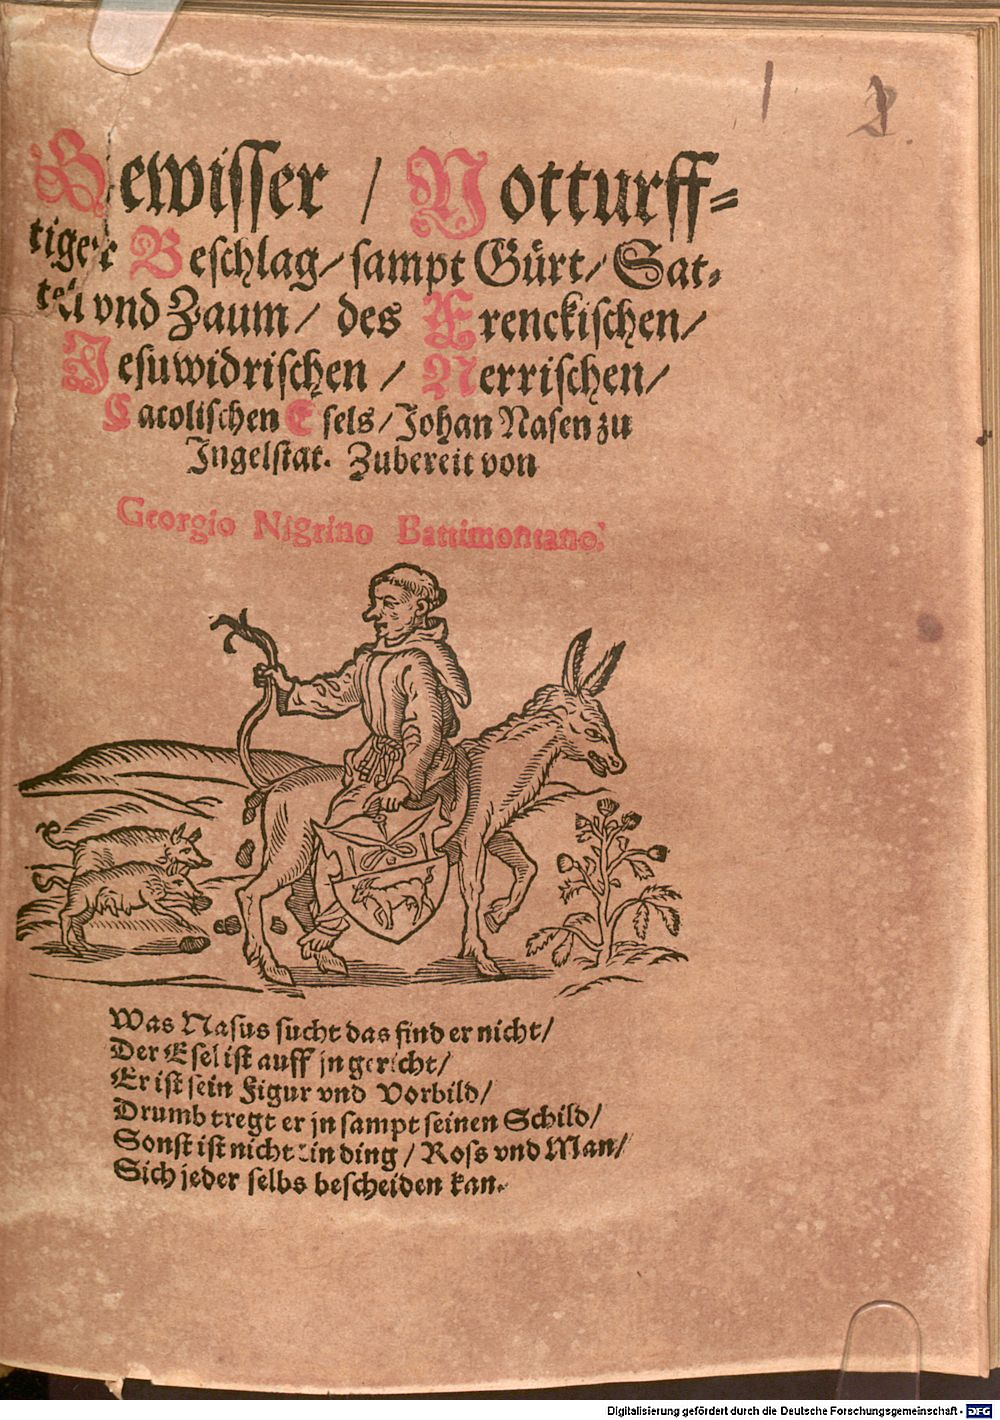 Gewisser / Notturff⸗
tiger Beschlag / sampt Gürt / Sat⸗
tel vnd Zaum / des Frenckischen /
Jesuwidrischen / Nerrischen /
Cacolischen Esels / Johan Nasen zu
Ingelstat. Zubereit von
Georgio Nigrino Battimontano.
Was Nasus sucht das find er nicht /
Der Esel ist auff jn gericht /
Er ist sein Figur vnd Vorbild /
Drumb tregt er jn sampt seinen Schild /
Sonst ist nicht ein ding / Ross vnd Man /
Sich jeder selbs bescheiden kan.
Digitalisierung gefördert durch die Deutsche Forschungsgemeinschaft - DFG